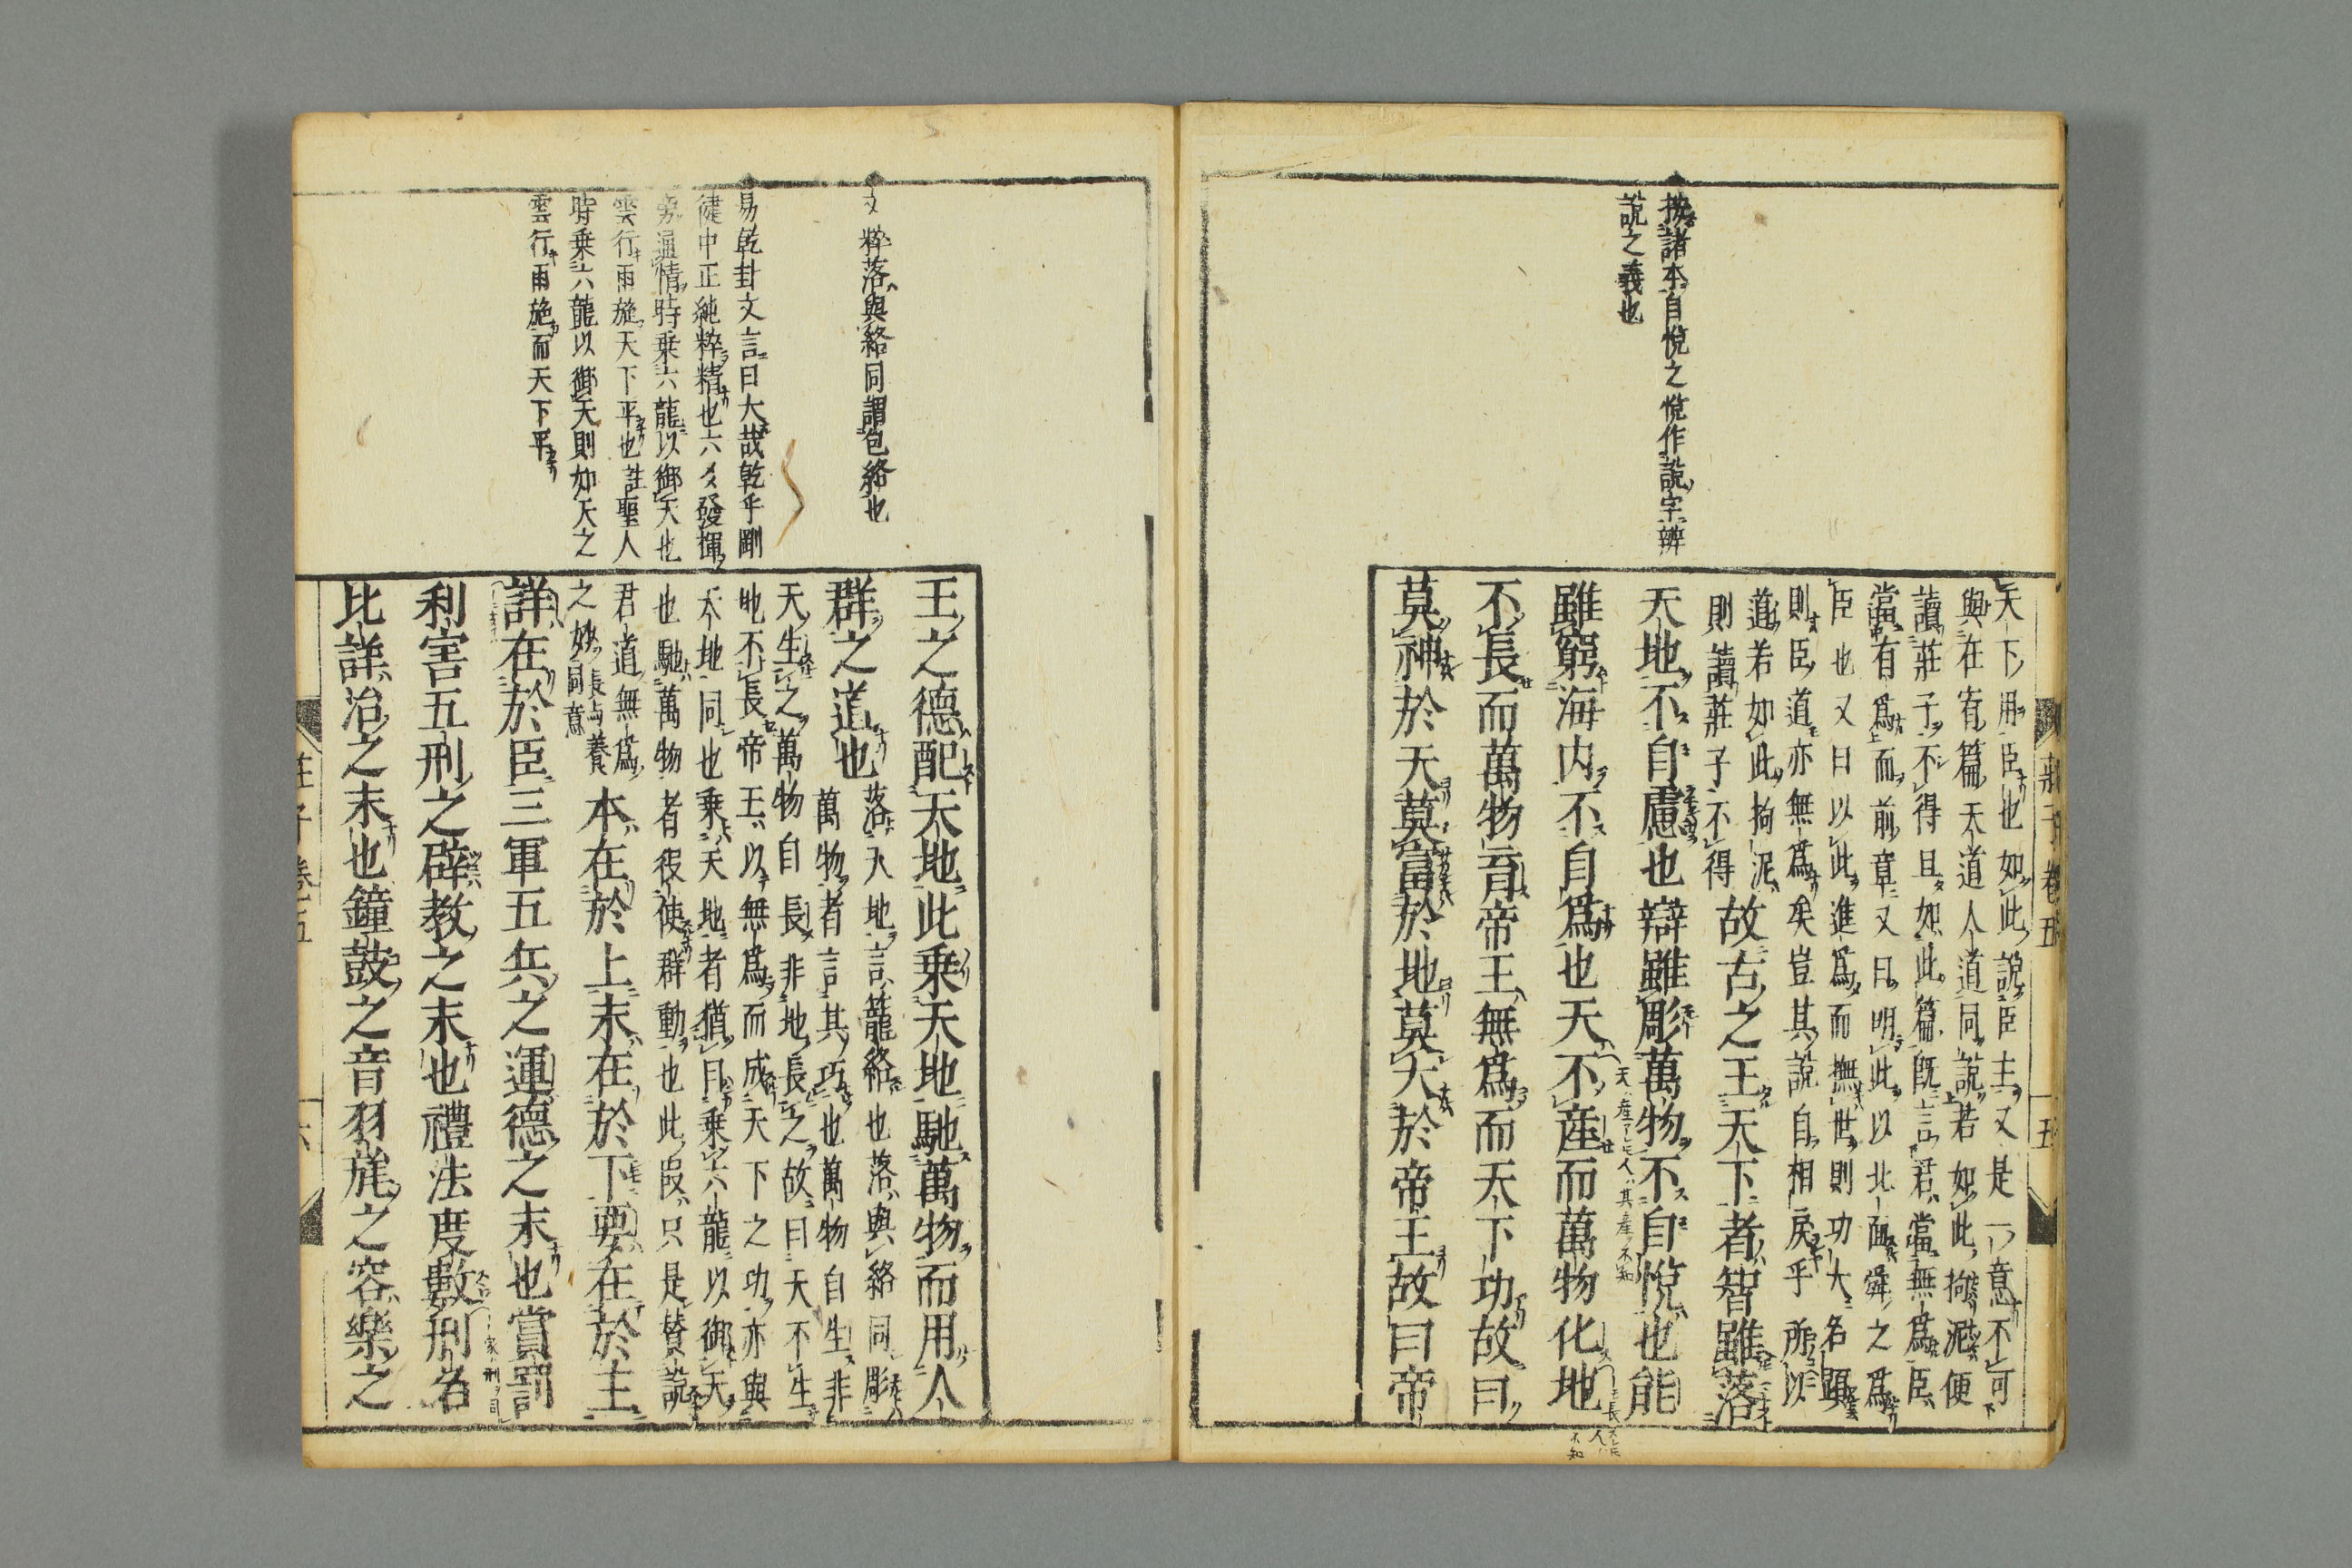 按諸本自悅之悅作說字辨
說之義也
天下用臣也如此說臣主又是一意不可
與在宥篇天道人道同說若如此拘泥便
讀莊子不得且如此篇既言君當無爲臣
當有爲而前章又曰明此以北面舜之爲
臣也又曰以此進爲而撫世則功大名顯
則臣道亦無爲矣豈其說自相戾乎所以
道若如此拘泥
則讀莊子不得故古之王天下者智雖落
天地不自慮也辯雖彫萬物不自悅也能
雖窮海内不自爲也天不産而萬物化地
不長而萬物育帝王無爲而天下功故曰
莫神於天莫富於地莫大於帝王故曰帝
莊子卷五
五
落與絡同謂包絡也
易乾卦文言曰大哉乾乎剛
健中正純粹精也六爻發揮
旁通情時乗六龍以御天也
雲行雨施天下平也註聖人
時乗六龍以御天則如天之
雲行雨施而天下平
王之德配天地此乗天地馳萬物而用人
群之道也落天地言籠絡也落與絡同彫
萬物者言其巧也萬物自生非
天生之萬物自長非地長之故曰天不生
地不長帝王以無爲而成天下之功亦與
天地同也乗天地者猶曰乗六龍以御天
也馳萬物者役使群動也此段只是賛說
君道無爲
之妙長与養同意本在於上末在於下要在於主
詳在於臣三軍五兵之運德之末也賞罰
利害五刑之辟教之末也禮法度數刑名
比詳治之末也鐘鼓之音羽旄之容樂之
莊子卷五
六